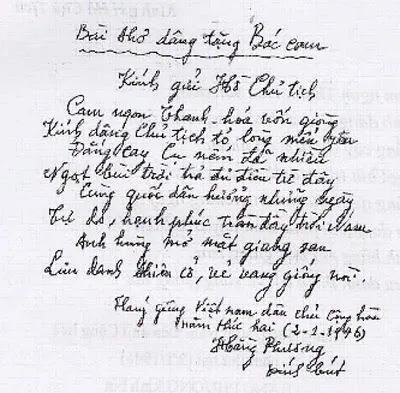 Bài thơ dâng tặng Bác cam
Kính gửi Hồ Chủ tịch
Cam ngon Thanh hóa vốn giòng
Kính dâng Chủ tịch tỏ lòng mến yêu
Đắng cay Cụ nếm đã nhiều
Ngọt bùi trời trả đủ điều từ đây
Cùng quốc dân hưởng những ngày
Tự do, hạnh phúc tràn đầy trời Nam
Anh hùng mở mặt giang san
Lưu danh thiên cổ, vẻ vang giống nòi.
Tháng giêng Việt nam dân chủ cộng hòa
năm thứ hai (2-1-1946)
Hằng Phương
kính bút